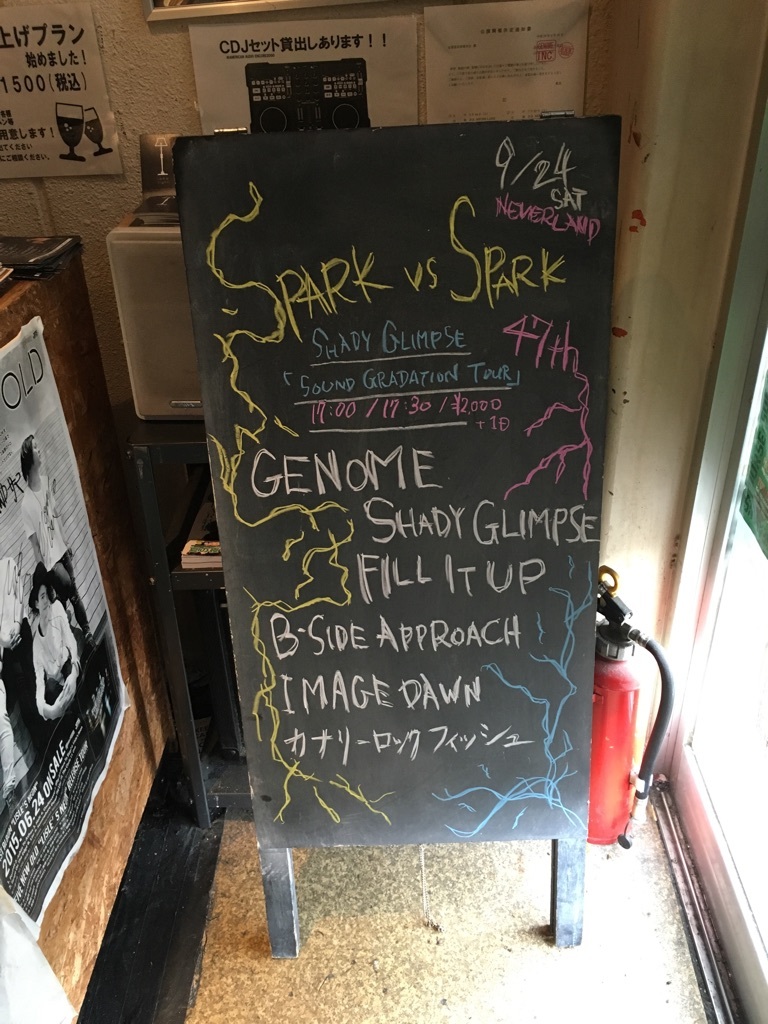 上げプラン
始めました!
1500(税込)
用意します!
にご相談ください。
CDJセット貸出しあります!!
9/24
SAT
NEVERLAND
SPARK VS SPARK
47th
SHADY GLIMPSE
「SOUND GRADATION TOUR」
17:00 / 17:30 / ¥2,000
+1D
GENOME
SHADY GLIMPSE
FILL IT UP
B-SIDE APPROACH
IMAGE DAWN
カナリーロックフィッシュ
OLD
2015.06.24 ON SALE